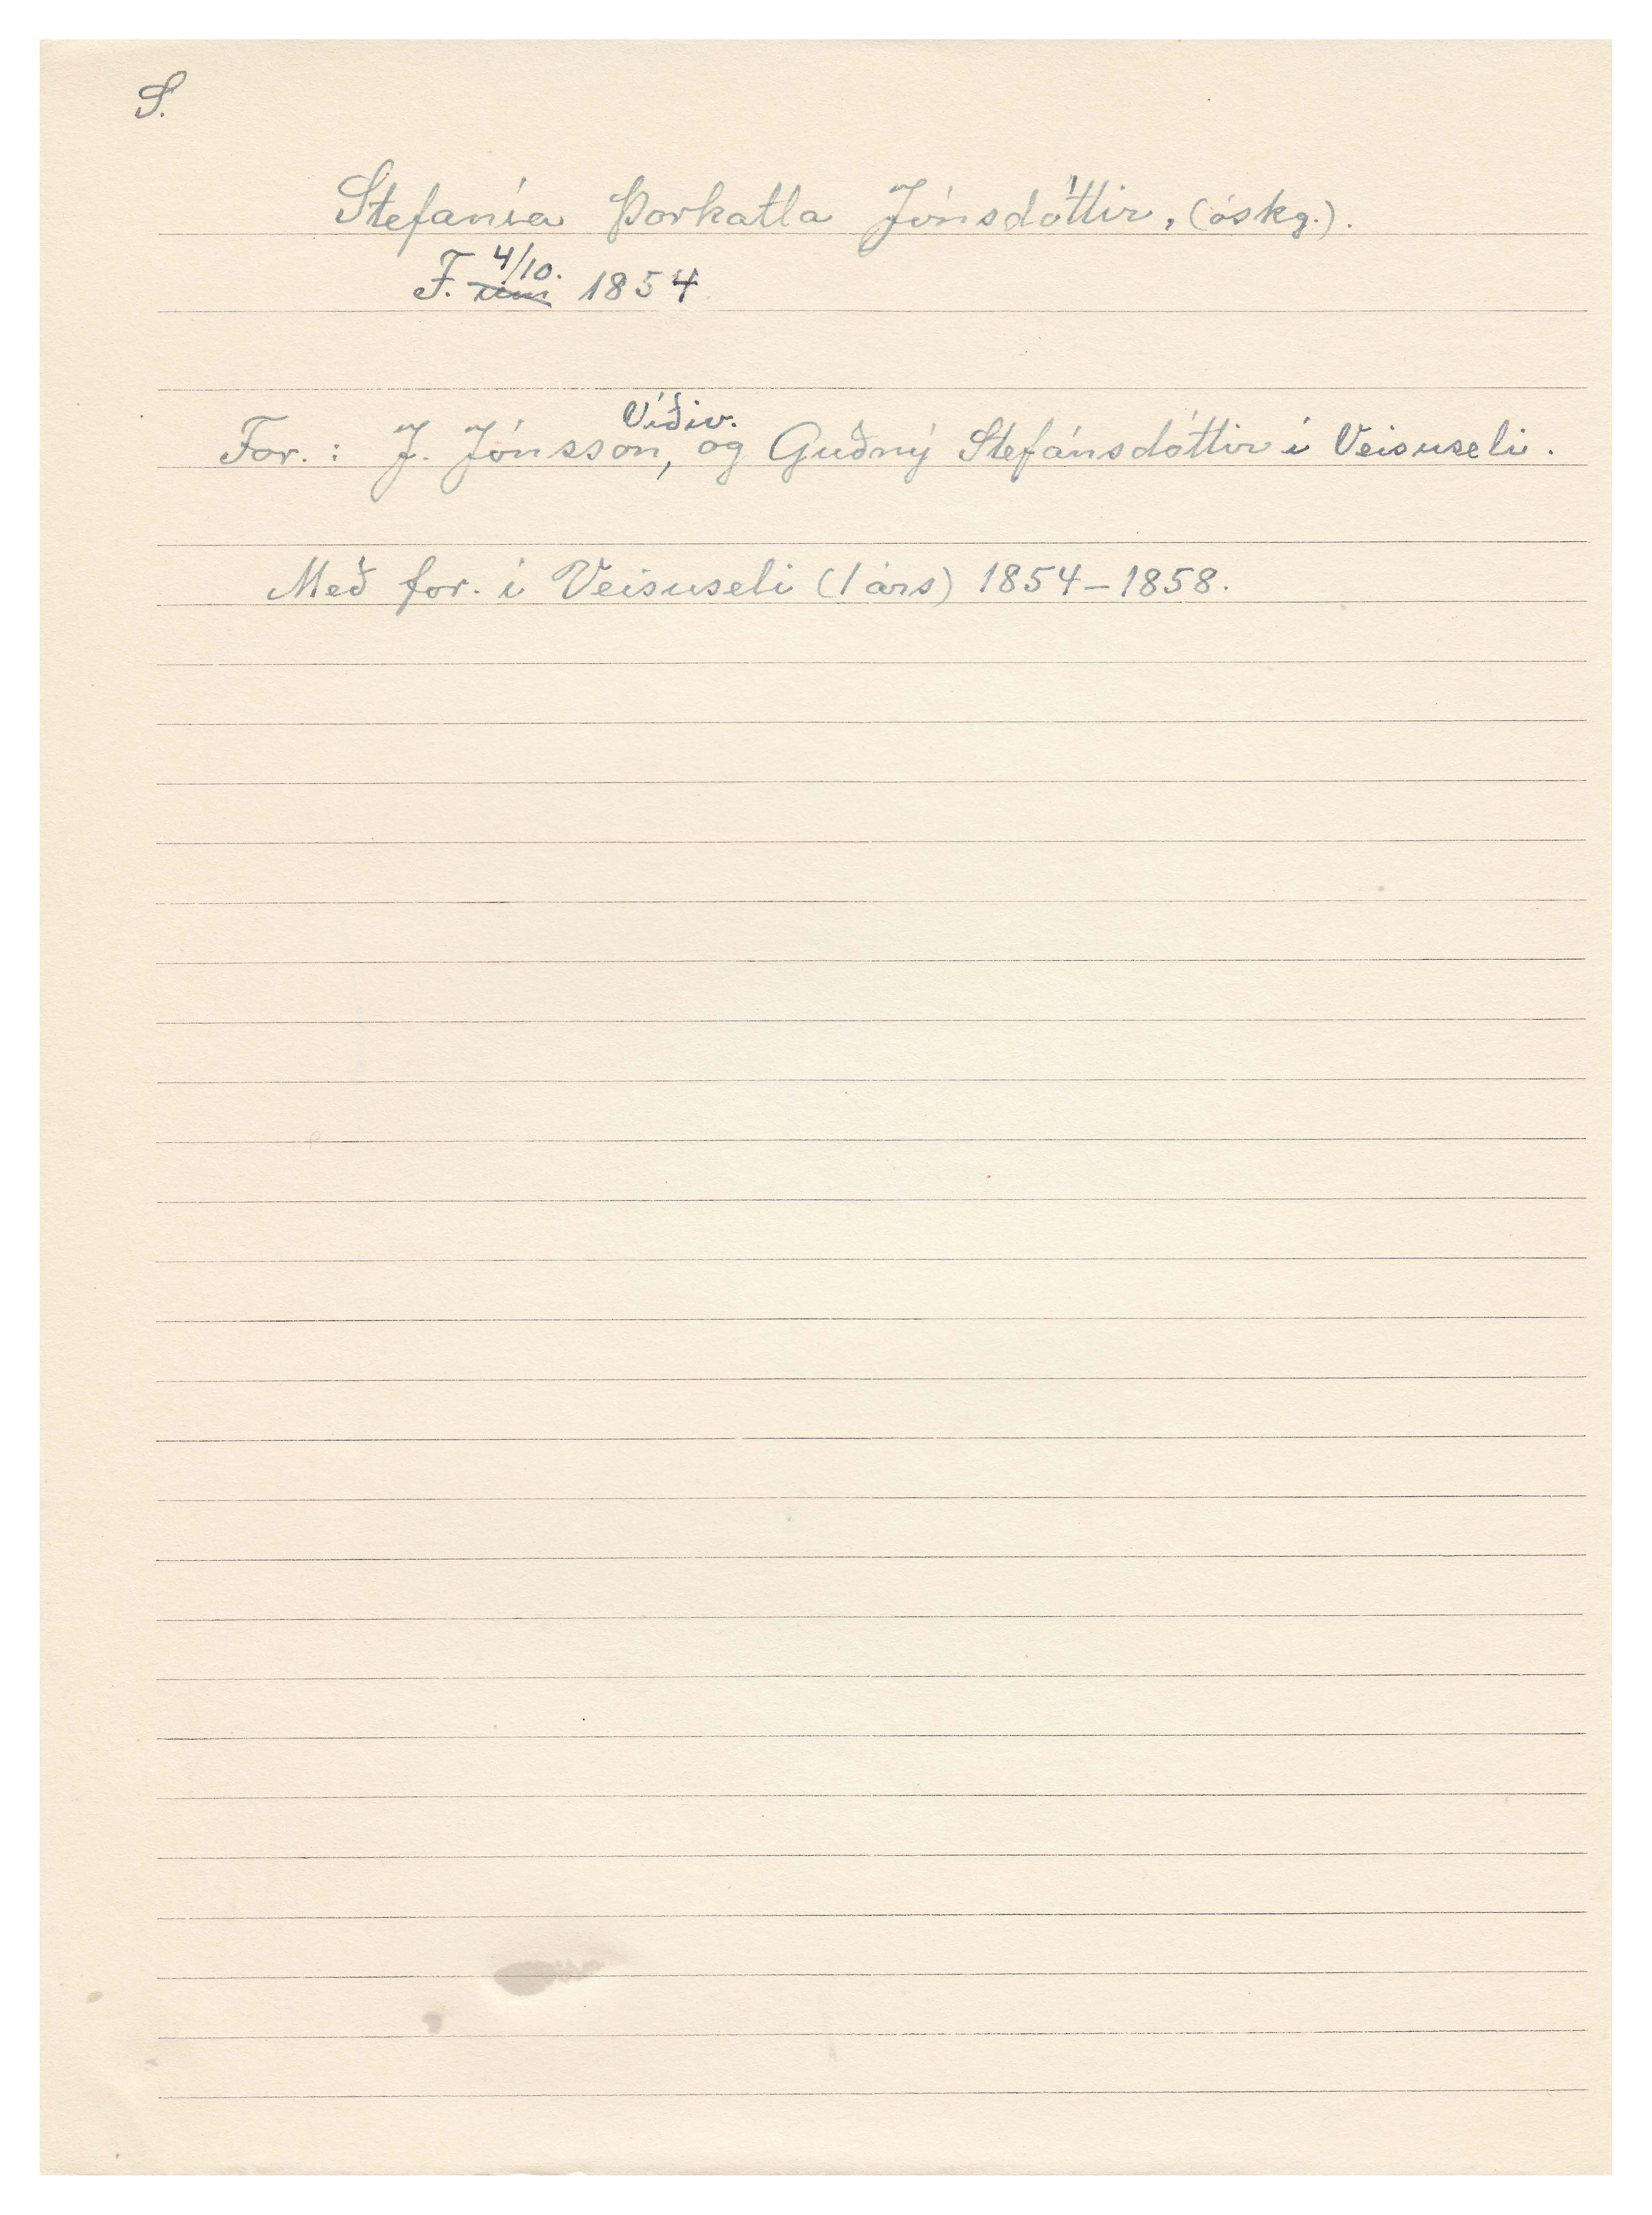 S.
Stefanía Þorkatla Jónsdóttir, (óskg.).
F. 4/10. 1854
Víðiv.
For.: J. Jónsson, og Guðný Stefánsdóttir í Veisuseli.
Með for. í Veisuseli (1 árs) 1854-1858.